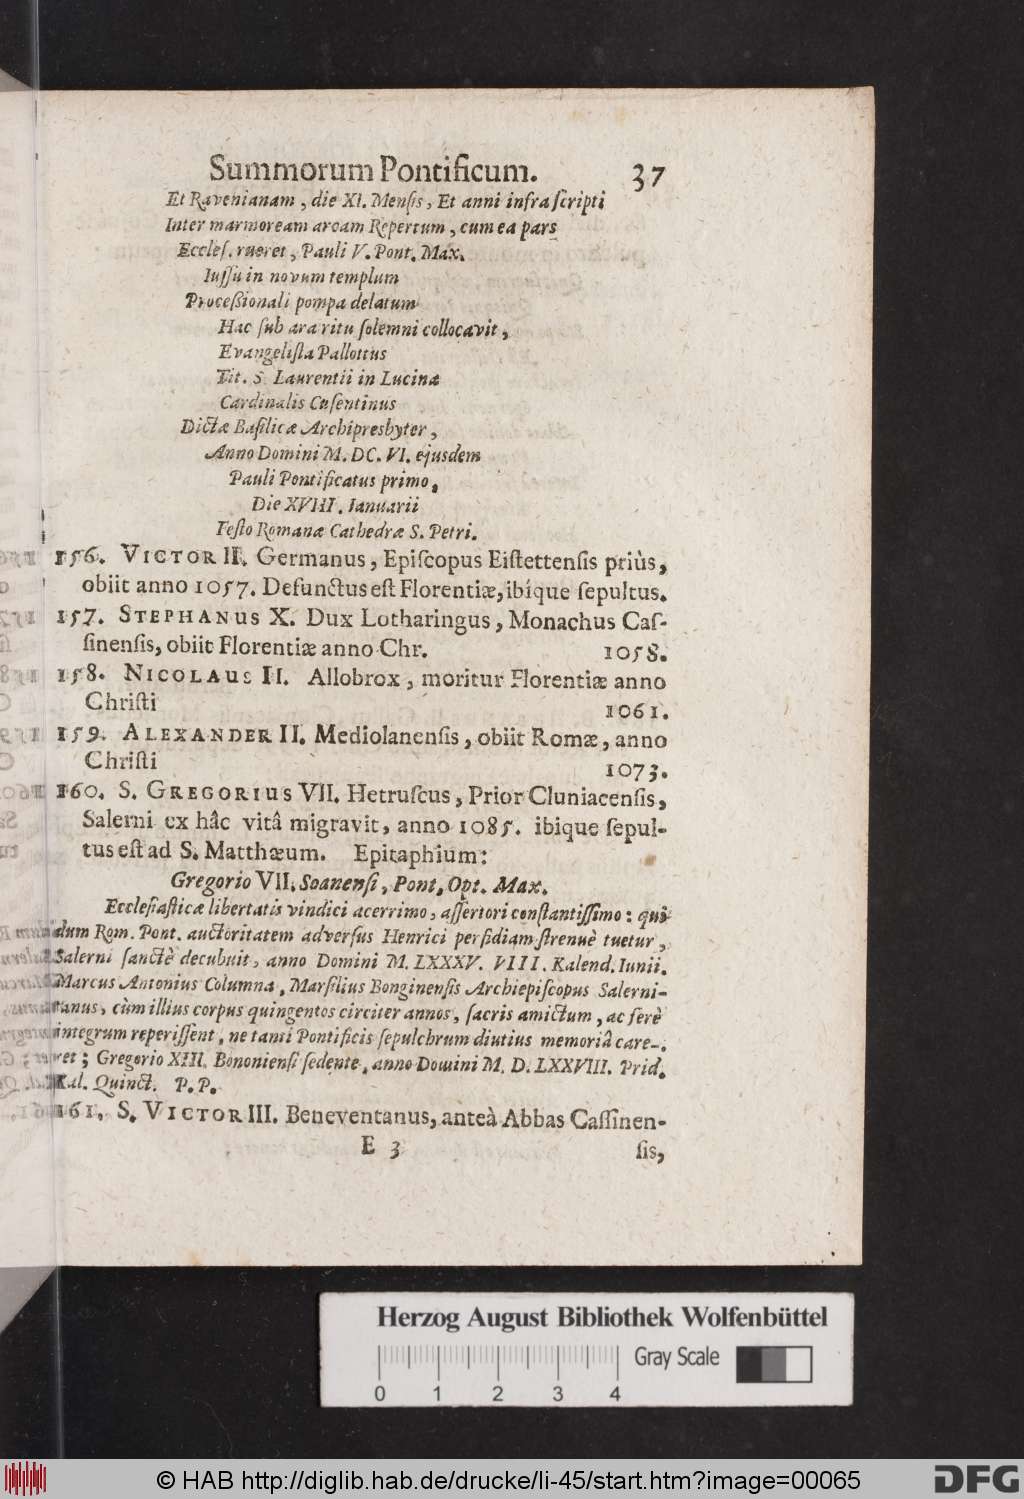 Summorum Pontificum. 37
Et Ravenianam, die XI. Mensis, Et anni infra scripti
Inter marmoream arcam Repertum, cum ea pars
Eccles. rueret, Pauli V. Pont. Max.
Iussu in novum templum
Proceßionali pompa delatum
Hac sub ara ritu solemni collocavit,
Evangelista Pallottus
Tit. S. Laurentii in Lucina
Cardinalis Cusentinus
Dictæ Basilicæ Archipresbyter,
Anno Domini M. DC. VI. ejusdem
Pauli Pontificatus primo,
Die XVIII. Ianuarii
Festo Romanæ Cathedræ S. Petri.
156. VICTOR II. Germanus, Episcopus Eistettensis priùs,
obiit anno 1057. Defunctus est Florentiæ, ibíque sepultus.
157. STEPHANUS X. Dux Lotharingus, Monachus Cas-
sinensis, obiit Florentiæ anno Chr. 1058.
158. NICOLAUS II. Allobrox, moritur Florentiæ anno
Christi 1061.
159. ALEXANDER II. Mediolanensis, obiit Romæ, anno
Christi 1073.
160. S. GREGORIUS VII. Hetruscus, Prior Cluniacensis,
Salerni ex hâc vitâ migravit, anno 1085. ibique sepul-
tus est ad S. Matthæum. Epitaphium:
Gregorio VII. Soanensi, Pont. Opt. Max.
Ecclesiasticæ libertatis vindici acerrimo, assertori constantissimo: qui
dum Rom. Pont. auctoritatem adversus Henrici perfidiam strenuè tuetur,
Salerni sanctè decubuit, anno Domini M. LXXXV. VIII. Kalend. Iunii.
Marcus Antonius Columna, Marsilius Bonginensis Archiepiscopus Salerni-
tanus, cùm illius corpus quingentos circiter annos, sacris amictum, ac ferè
integrum reperissent, ne tanti Pontificis sepulchrum diutius memoriâ care-
ret; Gregorio XIII. Bononiensi sedente, anno Domini M. D. LXXVIII. Prid.
Kal. Quinct. P. P.
161. S. VICTOR III. Beneventanus, anteà Abbas Cassinen-
E 3 sis,
Herzog August Bibliothek Wolfenbüttel
Gray Scale
0 1 2 3 4
© HAB http://diglib.hab.de/drucke/li-45/start.htm?image=00065
DFG